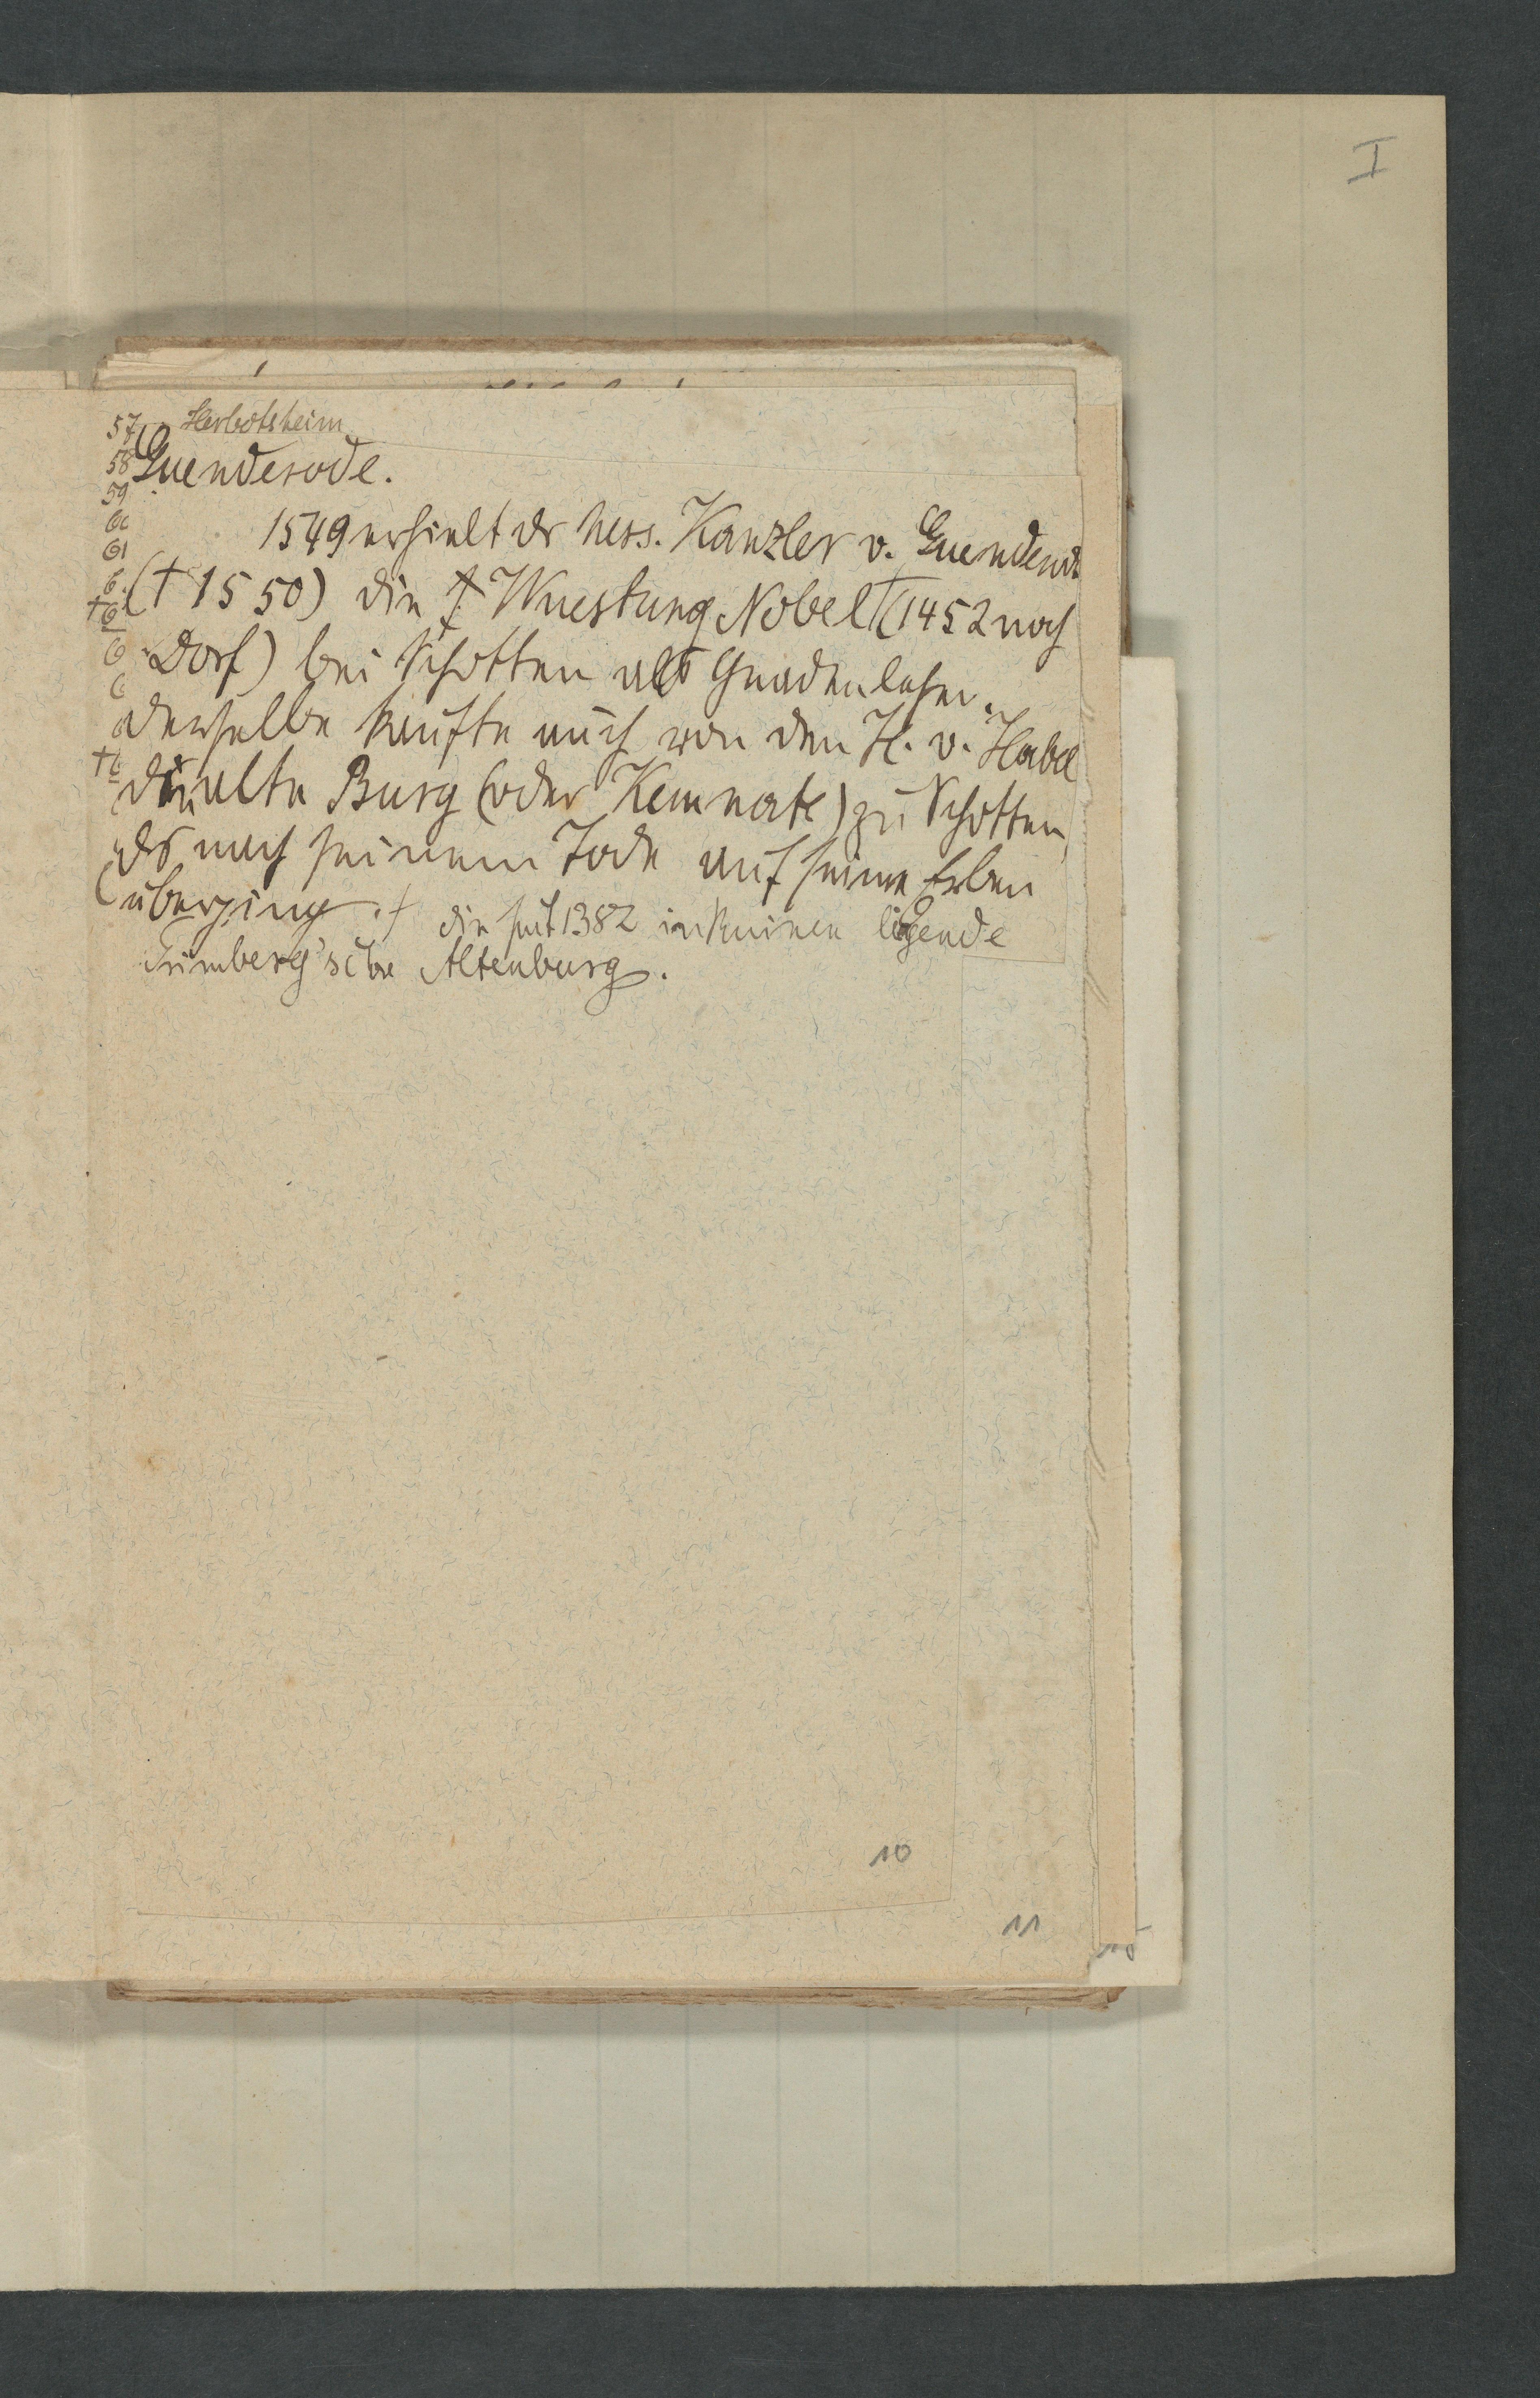 I
57 Herbotsheim
58 Guenderode.
59
60 1549 erhielt dr hess. Kanzler v. Guenderod
61 († 1550) die Wuestung Nobel (1452 noch
Dorf) bei Schotten als Gnadenlehen.
derselbe kaufte auch von den H. v. Habel
die alte Burg (oder Kemnate) zu Schotten,
ds nach seinem Tode auf seine Erben
überging. † die seit 1382 in Ruinen ligende
Trimberg'sche Altenburg.
10
11